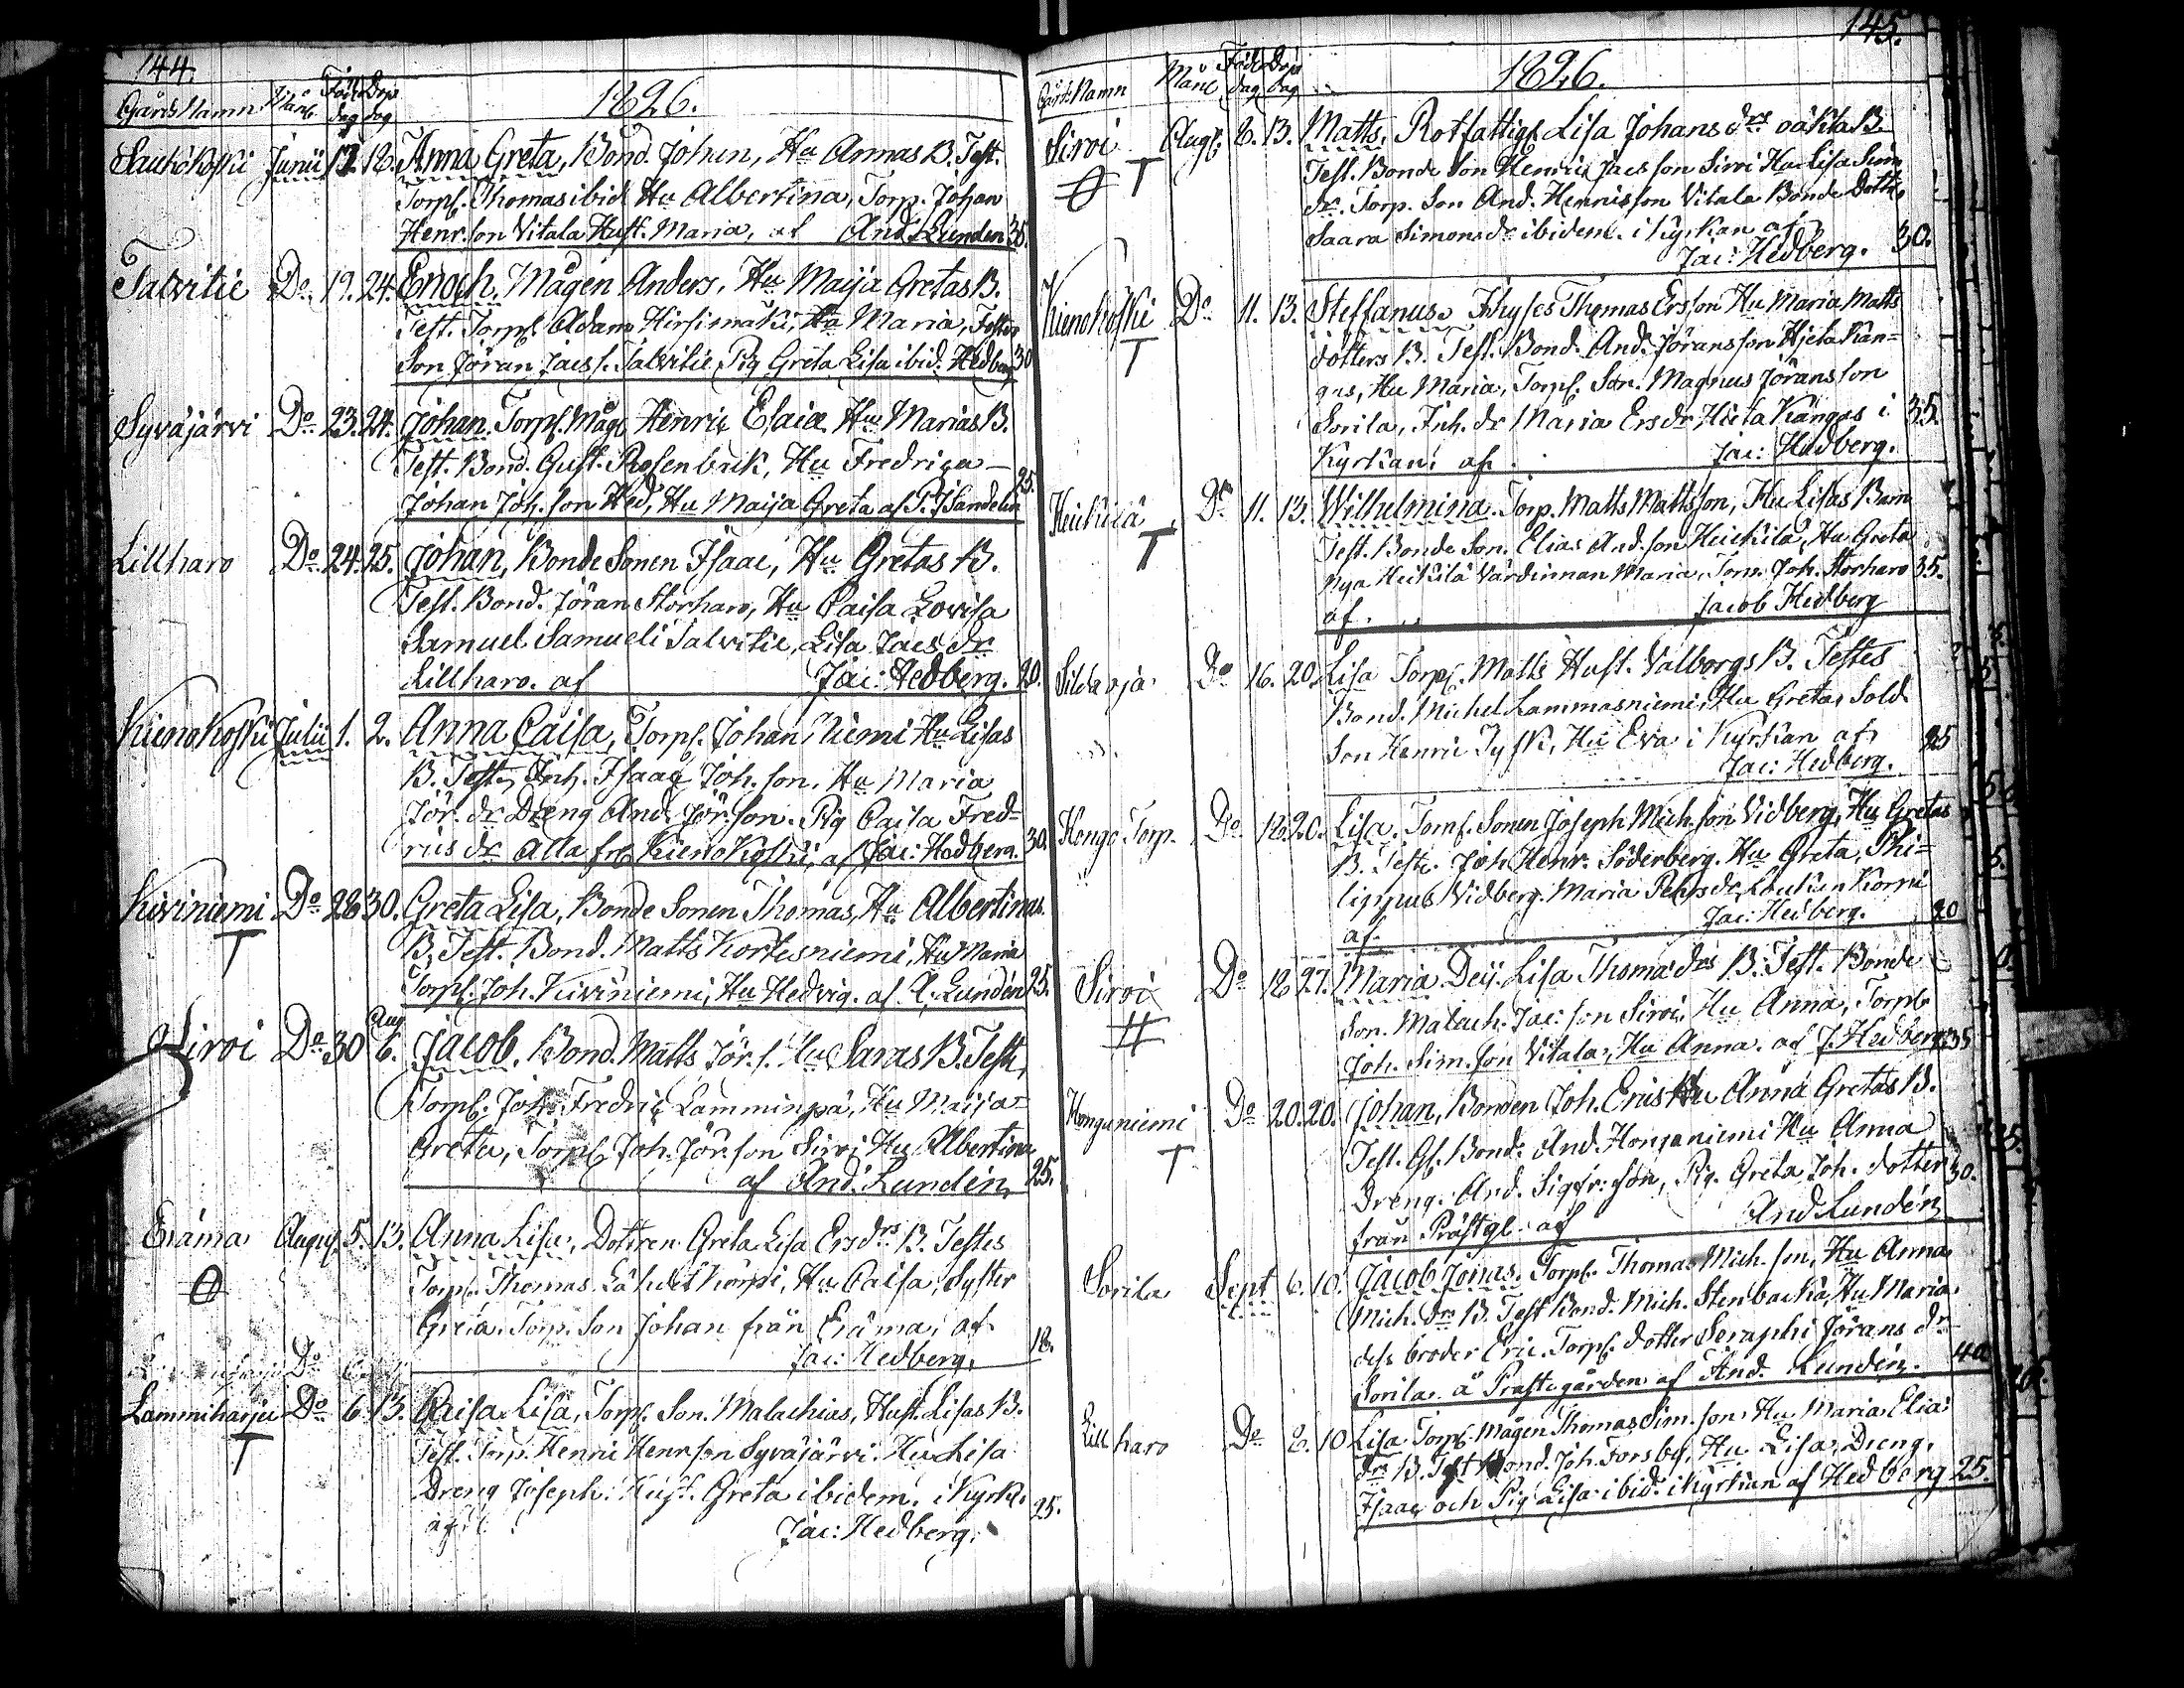 144.
Gårds Namn Mån Föd. dag Dop dag 1826.
Sautokoski Junii 17. 18. Anna Greta, Bond. Johan, Hu Annas B. Test.
Torp. Thomas ibid Hu Albertina, Torp. Johan
Henr.son Vitala Hust. Maria, af And. Lunden 35.
Talvitie Do 19. 24. Enoch. Mågen Anders, Hu Maija Gretas B.
Test. Torp. Adam Hirsimäki, Hu Maria, Foster
Son Jöran Jacs s. Talvitie Pig Greta Lisa ibid. Hedberg 30
Syväjärvi Do 23. 24. Johan. Torp. Måg Henric Elaiæ Hu Marias B.
Test. Bond. Gust. Rosenbrik, Hu Fredrica
Johan Joh. son Hed, Hu Maija Greta af P. J Sandelin 25.
Lillharo Do 24. 25. Johan, Bonde Sonen Isaac, Hu Gretas B.
Test. Bond. Jöran Storharo, Hu Caisa Lovisa
Samuel Samueli Talvitie, Lisa Jacs dr
Lillharo. af Jac: Hedberg. 20.
Kienokoski Julii 1. 2. Anna Caisa, Torp. Johan Niemi Hu Lisas
B. Test. Inh. Isaac Joh. son. Hu Maria
Jör. dr Dreng And. Jör. son. Pig Caisa Fred=
rics dr alla frå Kienokoski, af Jac: Hedberg. 30.
Kiviniemi Do 28 30. Greta Lisa, Bonde Sonen Thomas, Hu Albertinas
T B. Test. Bond. Matts Kortesniemi, Hu Maria
Torp. Joh. Kiviniemi, Hu Hedvig. af A. Lundén 25.
Sirvi Do 30 Aug 6. Jacob. Bond. Matts Jör. s. Hu Saras B. Test,
Torp. Joh. Fredric Lamminpä, Hu Maija
Greta, Torp. Joh. Jör. son Sirvi Hu Albertina
af And. Lundén, 25.
Eräma August. 5. 13. Anna Lisa, Dottren Greta Lisa Ersdrs B. Testes
Torp. Thomas Hu Caisa, Syster
Greta, Torp. Son Johan från Eräma, af
Jac: Hedberg. 18.
Do 6.
Lammiharju Do 6. 13. Caisa Lisa, Torp. Son. Malachias, Hust. Lisas B.
T Test. Torp. Henric Henr.son Syväjärvi. Hu Lisa
Dreng Joseph. Hust. Greta ibidem. i Kyrk.
af Jac: Hedberg. 25.
145.
Gårds Namn Mån Föd. dag Dop dag 1826.
Sirvi Aug. 8. 13. Matts, Rotfattig Lisa Johans drs oäkta B.
T Test. Bonde Son Henric Jacs son Sirvi Hu Lisa Sim
dr. Torp. Son And. Henricsson Vitala Bonde Dotter
Saara Simons dr ibidem. i Kyrkan af
Jac: Hedberg. 30.
Kienokoski Do 11. 13. Steffanus, Inhyses Thomas Ersson Hu Maria Matts
T dotters B. Test. Bond. And. Jöransson Hjetakan=
gas, Hu Maria, Torp. Son. Magnus Jöransson
Sorila, Inh. dr Maria Ersdr Hieta Kangas i 35.
Kyrkan, af. Jac: Hedberg.
Heickilä Do 11. 13. Wilhelmina. Torp. Matts Mattsson, Hu Lisas Barn
T Test. Bonde Son. Elias And.son Heickilä, Hu Greta
nya Heickilä Värdinnan Maria, Torp. Joh. Storharo 35.
af. Jacob Hedberg
Sildaoja Do 16. 20. Lisa Torp. Matts Hust. Valborgs B. Testes
Bond. Michel Lammasniemi, Hu Greta, Sold.
Son Henric Tysk, Hu Eva i Kyrkan af 25
Jac: Hedberg.
Kongo Torp. Do 18. 20. Lisa. Torp. Sonen Joseph Mich. son Vidberg, Hu Gretas
B. Test. Joh Henr. Söderberg. Hu Greta, Phi=
lippus Vidberg. Maria Pehrs dr
af. Jac: Hedberg. 20
Sirvi Do 18 27. Maria Deij. Lisa Thomæ drs B. Test. Bonde
Son. Malach. Jac: son Sirvi Hu Anna, Torp.
Joh. Sim. son Vitala, Hu Anna. af J. Hedberg. 35
Honganiemi Do 20. 20. Johan, Bonden Joh. Erics Hu Anna Gretas B.
T Test. Gl. Bond. And. Honganiemi Hu Anna
Dreng. And. Sigfr: son, Pig. Greta Joh. dotter 30.
från Prästg. af And Lundén
Sorila Sept 6. 10. Jacob Jonas. Torp. Thomas Mich. son, Hu Anna
Mich. drs B. Test Bond. Mich. Stenbacka, Hu Maria
dess broder Eric. Torp. dotter Seraphi Jörans dr
Sorila. å Prästegården af And. Lundén. 40
Lill haro Do 8. 10 Lisa Torp. Mågen Thomas Sim. son. Hu Maria Eliæ
drs B. Test Bond. Joh. Forsby, Hu Lisa, Dreng.
Isaac och Pig Lisa ibid. i Kyrkan af Hedberg 25.